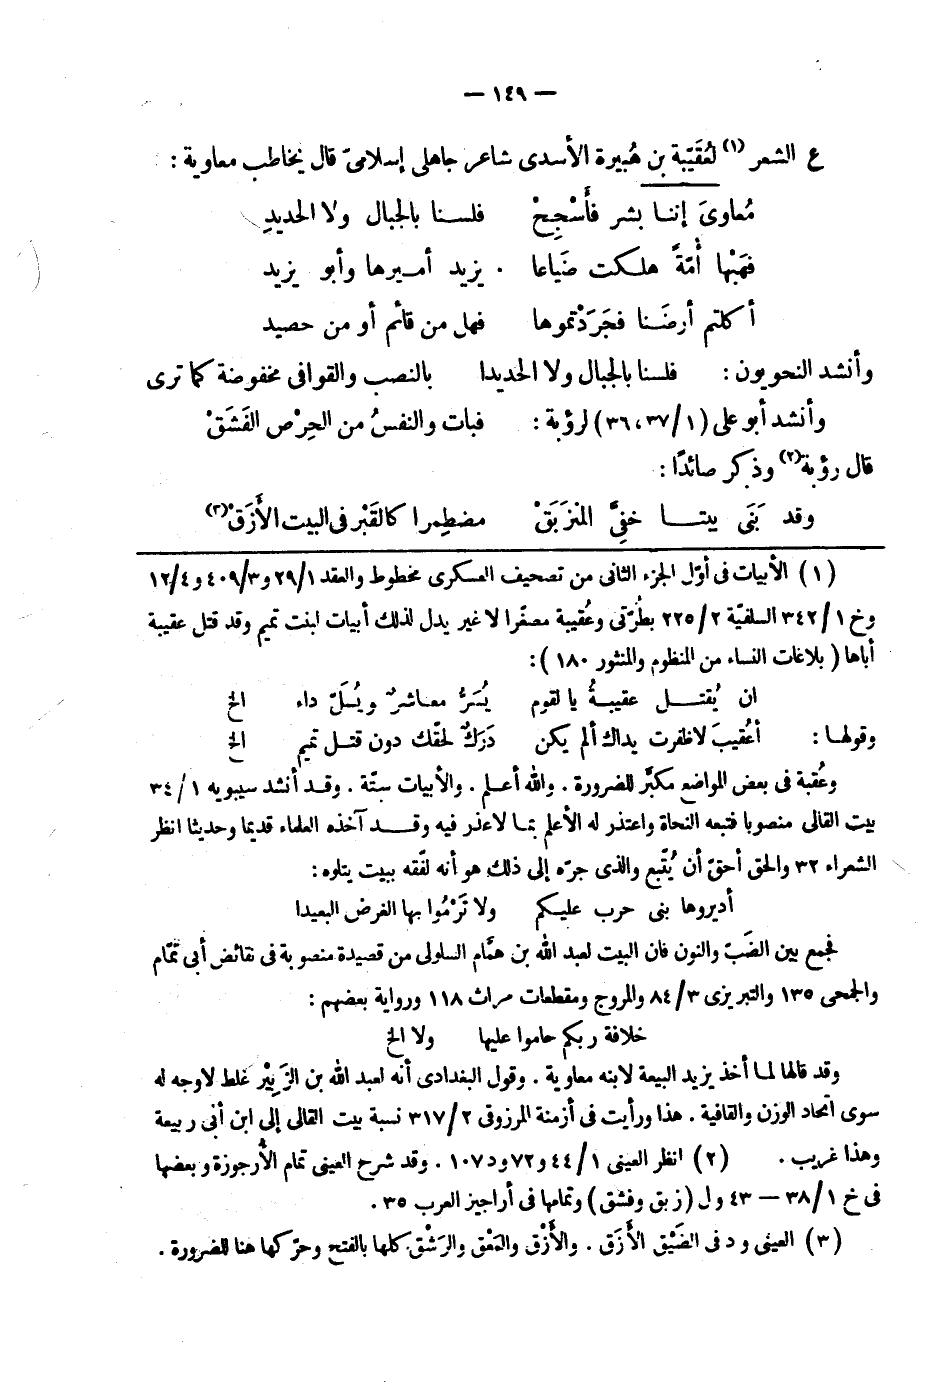 — ١٤٩ —
ع الشعر (١) لعُقَيْبة بن هُبيرة الأسدى شاعر جاهلى إسلامىّ قال يخاطب معاوية :
مُعاوىَ إننا بشر فأَسْجِحْ فلسنا بالجبال ولا الحديدِ
فهَبْها أُمّةً هلكت ضَياعا يزيد أميرها وأبو يزيد
أكلتم أرضَنا فجَرَدْتموها فهل من قائم أو من حصيد
وأنشد النحويون : فلسنا بالجبال ولا الحديدا بالنصب والقوافى مخفوضة كما ترى
وأنشد أبو على (١/٣٧، ٣٦) لرؤبة : فبات والنفسُ من الحِرْص الفَشَقْ
قال رؤبة (٢) وذكر صائدًا :
وقد بَنَى بيتا خفِىَّ المُنْزَبَقْ مضطمِرا كالقَبْر فى البيت الأَزَقْ (٣)
(١) الأبيات فى أوّل الجزء الثانى من تصحيف العسكرى مخطوط والعقد ٢٩/١ و٤٠٩/٣ و١٢/٤
وخ ٣٤٢/١ السلفيّة ٢٢٥/٢ بطُرّتى وعُقيبة مصغّرا لا غير يدل لذلك أبيات ابنت تميم وقد قتل عقيبة
أباها ( بلاغات النساء من المنظوم والمنثور ١٨٠ ) :
ان يُقتل عقيبةُ يا لقوم يُسَرُّ معاشرٌ ويُسَلّ داء الخ
وقولها : أعُقيبَ لاظفرت يداك ألم يكن دَرَكٌ لحقّك دون قتل تميم الخ
وعُقبة فى بعض المواضع مكبَّر للضرورة . والله أعلم . والأبيات ستّة . وقد أنشد سيبويه ٣٤/١
بيت القالى منصوبا فتبعه النحاة واعتذر له الأعلم بما لاعذر فيه وقد آخذه العلماء قديما وحديثا انظر
الشعراء ٣٢ والحق أحقّ أن يُتّبع والذى جرّه إلى ذلك هو أنه لفّقه ببيت يتلوه :
أديروها بنى حرب عليكم ولا تَرْمُوا بها الغرض البعيدا
فجمع بين الضَبّ والنون فان البيت لعبد الله بن همّام السلولى من قصيدة منصوبة فى نقائض أبى تمّام
والجمحى ١٣٥ والتبريزى ٨٤/٣ والمروج ومقطعات مراث ١١٨ ورواية بعضهم :
خلافة ربكم حاموا عليها ولا الخ
وقد قالها لما أخذ يزيد البيعة لابنه معاوية . وقول البغدادى أنه لعبد الله بن الزَبِيْر غلط لاوجه له
سوى اتحاد الوزن والقافية . هذا ورأيت فى أزمنة المرزوقى ٣١٧/٢ نسبة بيت القالى إلى ابن أبى ربيعة
وهذا غريب . (٢) انظر العينى ٤٤/١ و٧٢ ود ١٠٧ . وقد شرح العينى تمام الأرجوزة وبعضها
فى خ ٣٨/١ — ٤٣ ول ( زبق وفشق ) وتمامها فى أراجيز العرب ٣٥ .
(٣) العينى و د فى الضَيْق الأَزَق . والأَزْق والمَعْق والرَشْق كلها بالفتح وحرّكها هنا للضرورة .